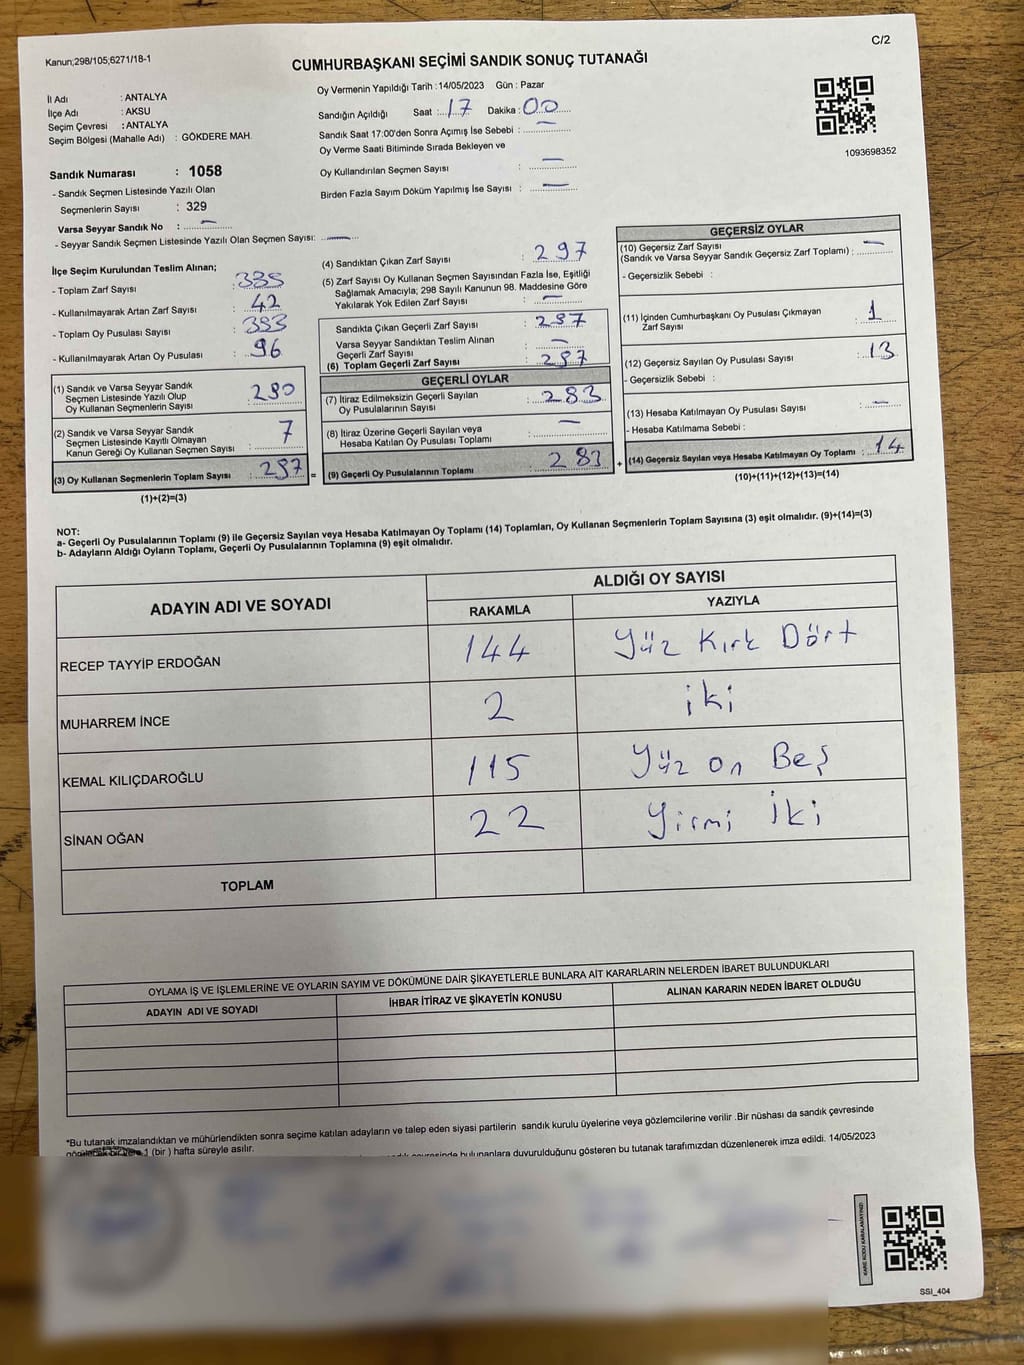 Kanun;298/105;6271/18-1
C/2
CUMHURBAŞKANI SEÇİMİ SANDIK SONUÇ TUTANAĞI
İl Adı : ANTALYA
İlçe Adı : AKSU
Seçim Çevresi : ANTALYA
Seçim Bölgesi (Mahalle Adı) : GÖKDERE MAH.
Oy Vermenin Yapıldığı Tarih : 14/05/2023 Gün : Pazar
Sandığın Açıldığı Saat : 17 Dakika : 00
Sandık Saat 17:00'den Sonra Açımış İse Sebebi : —
Oy Verme Saati Bitiminde Sırada Bekleyen ve
Oy Kullandırılan Seçmen Sayısı : —
Birden Fazla Sayım Döküm Yapılmış İse Sayısı : —
1093698352
Sandık Numarası : 1058
- Sandık Seçmen Listesinde Yazılı Olan
Seçmenlerin Sayısı : 329
Varsa Seyyar Sandık No : —
- Seyyar Sandık Seçmen Listesinde Yazılı Olan Seçmen Sayısı: —
İlçe Seçim Kurulundan Teslim Alınan;
- Toplam Zarf Sayısı : 335
- Kullanılmayarak Artan Zarf Sayısı : 42
- Toplam Oy Pusulası Sayısı : 393
- Kullanılmayarak Artan Oy Pusulası : 96
(1) Sandık ve Varsa Seyyar Sandık
Seçmen Listesinde Yazılı Olup
Oy Kullanan Seçmenlerin Sayısı : 290
(2) Sandık ve Varsa Seyyar Sandık
Seçmen Listesinde Kayıtlı Olmayan
Kanun Gereği Oy Kullanan Seçmen Sayısı : 7
(3) Oy Kullanan Seçmenlerin Toplam Sayısı : 297 =
(1)+(2)=(3)
(4) Sandıktan Çıkan Zarf Sayısı : 297
(5) Zarf Sayısı Oy Kullanan Seçmen Sayısından Fazla İse, Eşitliği
Sağlamak Amacıyla; 298 Sayılı Kanunun 98. Maddesine Göre
Yakılarak Yok Edilen Zarf Sayısı : —
Sandıkta Çıkan Geçerli Zarf Sayısı : 297
Varsa Seyyar Sandıktan Teslim Alınan
Geçerli Zarf Sayısı : —
(6) Toplam Geçerli Zarf Sayısı : 297
GEÇERLİ OYLAR
(7) İtiraz Edilmeksizin Geçerli Sayılan
Oy Pusulalarının Sayısı : 283
(8) İtiraz Üzerine Geçerli Sayılan veya
Hesaba Katılan Oy Pusulası Toplamı : —
(9) Geçerli Oy Pusulalarının Toplamı : 283 +
GEÇERSİZ OYLAR
(10) Geçersiz Zarf Sayısı
(Sandık ve Varsa Seyyar Sandık Geçersiz Zarf Toplamı) : —
- Geçersizlik Sebebi :
(11) İçinden Cumhurbaşkanı Oy Pusulası Çıkmayan
Zarf Sayısı : 1
(12) Geçersiz Sayılan Oy Pusulası Sayısı : 13
- Geçersizlik Sebebi :
(13) Hesaba Katılmayan Oy Pusulası Sayısı : —
- Hesaba Katılmama Sebebi :
(14) Geçersiz Sayılan veya Hesaba Katılmayan Oy Toplamı : 14
(10)+(11)+(12)+(13)=(14)
NOT:
a- Geçerli Oy Pusulalarının Toplamı (9) ile Geçersiz Sayılan veya Hesaba Katılmayan Oy Toplamı (14) Toplamları, Oy Kullanan Seçmenlerin Toplam Sayısına (3) eşit olmalıdır. (9)+(14)=(3)
b- Adayların Aldığı Oyların Toplamı, Geçerli Oy Pusulalarının Toplamına (9) eşit olmalıdır.
ADAYIN ADI VE SOYADI
ALDIĞI OY SAYISI
RAKAMLA YAZIYLA
RECEP TAYYİP ERDOĞAN 144 Yüz Kırk Dört
MUHARREM İNCE 2 iki
KEMAL KILIÇDAROĞLU 115 Yüz on Beş
SİNAN OĞAN 22 Yirmi İki
TOPLAM
OYLAMA İŞ VE İŞLEMLERİNE VE OYLARIN SAYIM VE DÖKÜMÜNE DAİR ŞİKAYETLERLE BUNLARA AİT KARARLARIN NELERDEN İBARET BULUNDUKLARI
ADAYIN ADI VE SOYADI İHBAR İTİRAZ VE ŞİKAYETİN KONUSU ALINAN KARARIN NEDEN İBARET OLDUĞU
*Bu tutanak imzalandıktan ve mühürlendikten sonra seçime katılan adayların ve talep eden siyasi partilerin sandık kurulu üyelerine veya gözlemcilerine verilir .Bir nüshası da sandık çevresinde
1 (bir ) hafta süreyle asılır. bulunanlara duyurulduğunu gösteren bu tutanak tarafımızdan düzenlenerek imza edildi. 14/05/2023
KARE KODU KARALAMAYINIZ!
SSI_404